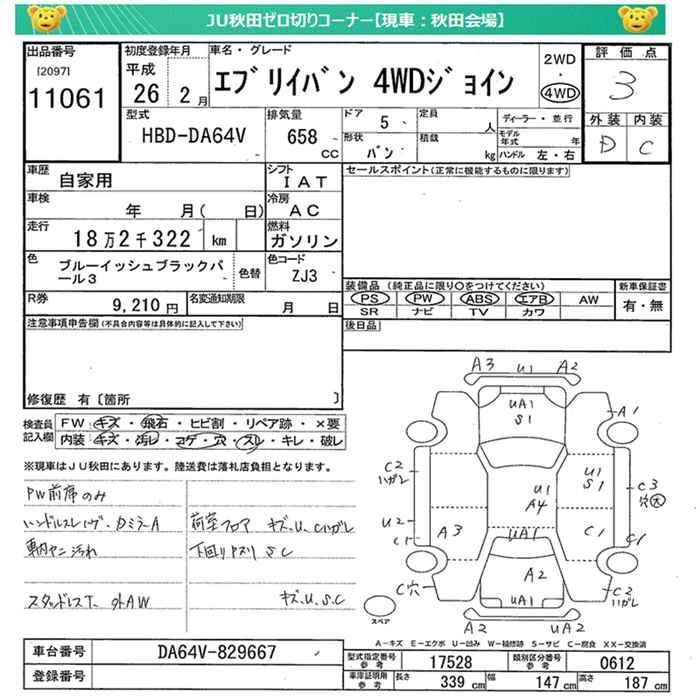 JU秋田ゼロ切りコーナー【現車：秋田会場】
出品番号
[2097]
11061
初度登録年月
平成
26 2 月
車名・グレード
エブリイバン 4WDジョイン
2WD
・
4WD
評価点
3
外装 内装
D C
型式
HBD-DA64V
排気量
658
cc
ドア 5
形状
バン
定員
人
積載
kg
ディーラー・並行
モデル年式 年
ハンドル 左・右
車歴
自家用
シフト
IAT
セールスポイント(正常に機能するものに限ります)
車検
年 月( 日)
冷房
AC
走行
18万2千322 km
燃料
ガソリン
色
ブルーイッシュブラックパール3
色替
色コード
ZJ3
装備品 (純正品に限り○をつけてください)
PS PW ABS エアB AW
SR ナビ TV カワ
新車保証書
有・無
R券
9,210 円
名変通知期限
月 日
後日品
注意事項申告欄(不具合内容等は具体的に記入して下さい)
修復歴 有〔箇所 〕
検査員
記入欄
FW キズ・飛石・ヒビ割・リペア跡・×要
内装 キズ・汚レ・コゲ・穴・スレ・キレ・破レ
※現車はJU秋田にあります。陸送費は落札店負担となります。
PW前席のみ
荷室フロア キズ、U、Cハガレ
車内ヤニ汚れ
下回りサビ SC
スタッドレスT、外AW
キズ、U、S、C
A3 U1 A2
UA1
S1
A1
C2
ハガレ
U1
S1
C3
穴大
U1
A4
U2
C1
A3
C1
C1
UA1
A2
C穴
C2
ハガレ
A2
UA1
U1
A2
スペア
A-キズ E-エクボ U-凹み W-補修跡 S-サビ C-腐食 XX-交換済
車台番号
DA64V-829667
登録番号
型式指定番号
参考
17528
類別区分番号
参考
0612
車庫証明用
参考
長さ 339 cm 幅 147 cm 高さ 187 cm